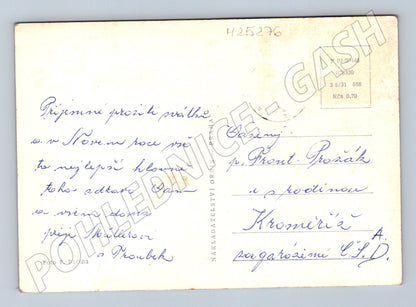 H25276
Příjemné prožití svátků
a v Novém roce vše
to nejlepší hlavně
toho zdraví Vám
a všem doma
přejí Müllerovi
z Troubek
NAKLADATELSTVÍ ORBIS PRAHA
Vážený
p. Frant. Pražák
i s rodinou
Kroměříž
za garážemi ČSAD.
POHLEDNICE - GASH